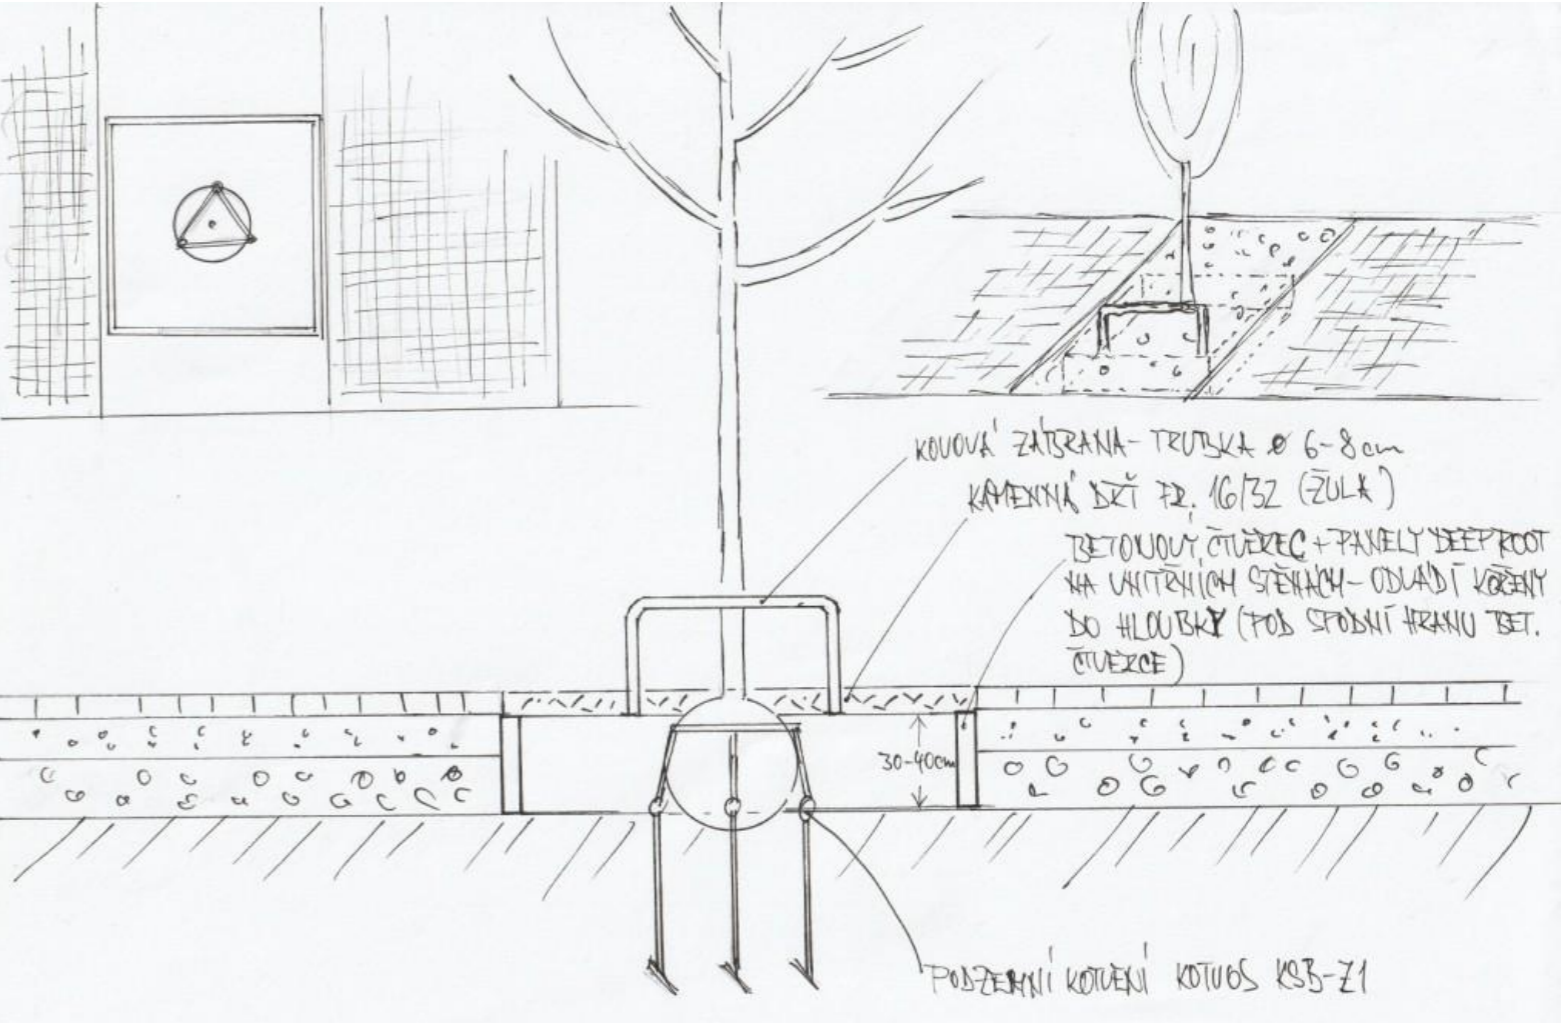 KOVOVÁ ZÁBRANA - TRUBKA ø 6-8 cm
KAMENNÁ DRŤ FR. 16/32 (ŽULA)
BETONOVÝ ČTVEREC + PANELY DEEPROOT
NA VNITŘNÍCH STĚNÁCH - ODVÁDÍ KOŘENY
DO HLOUBKY (POD SPODNÍ HRANU BET.
ČTVERCE)
30-40cm
PODZEMNÍ KOTVENÍ KOTVOS KSB-Z1